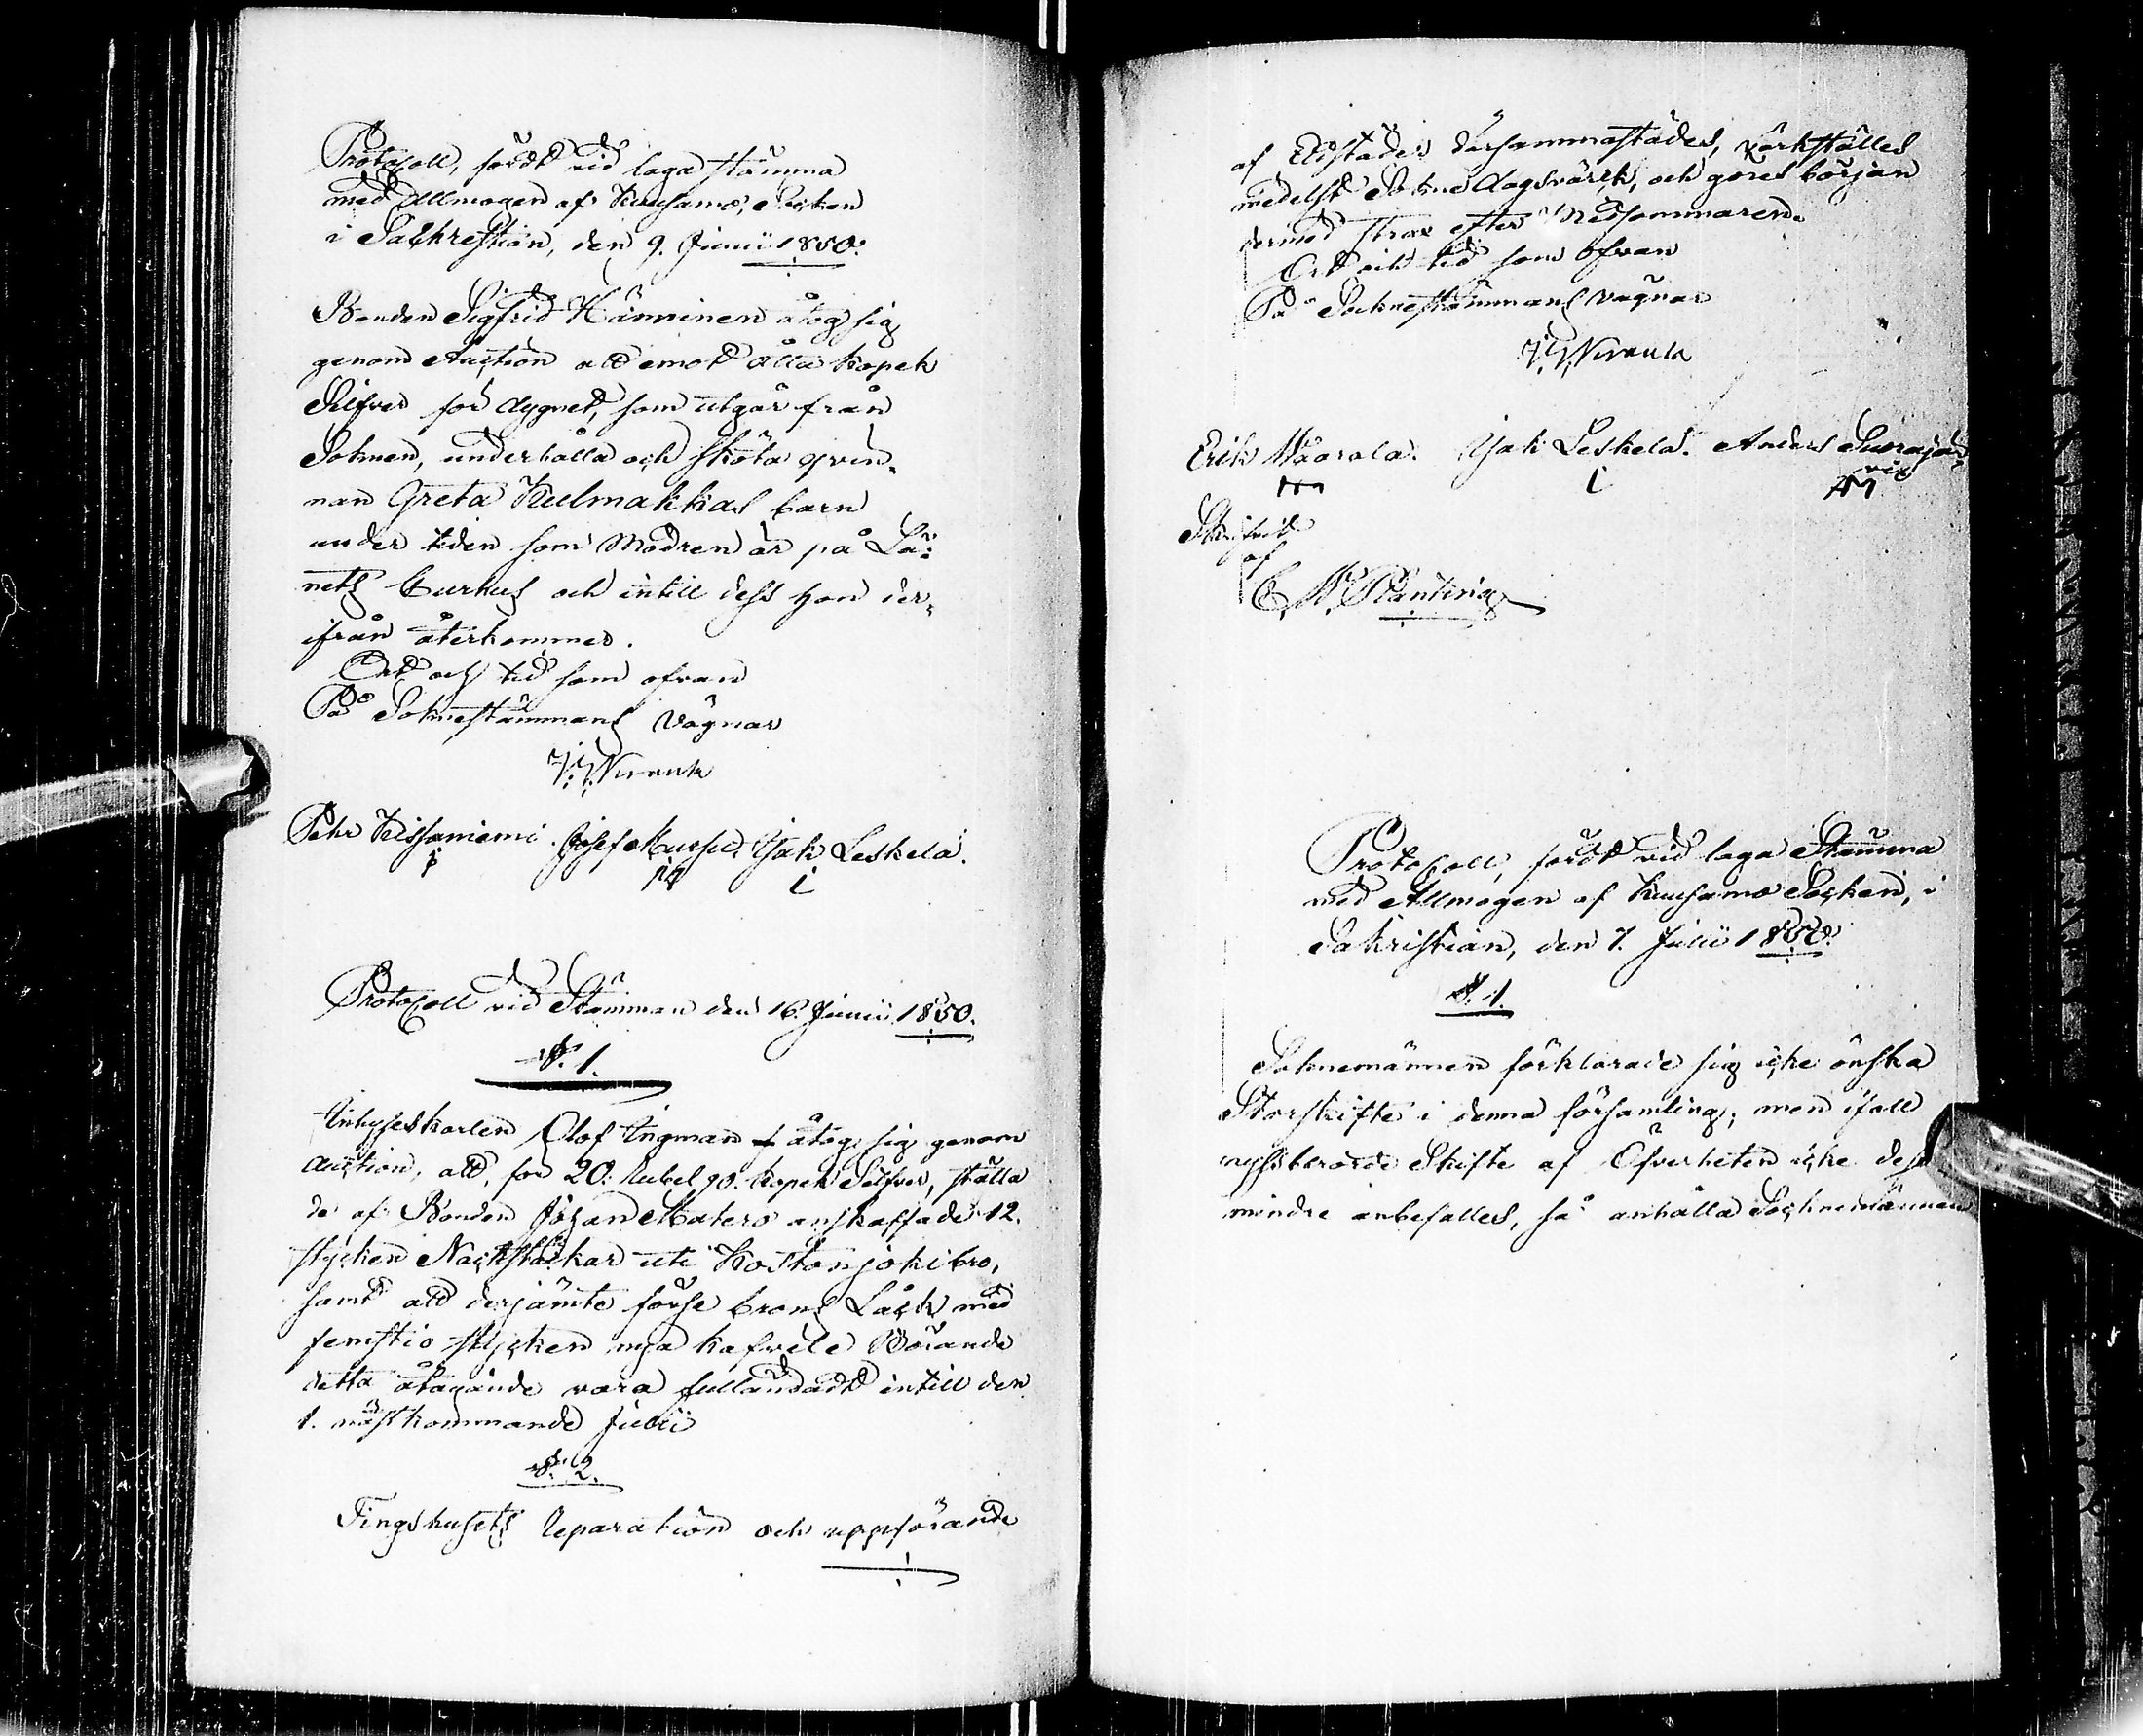 Protocoll, fördt vid laga stämma
med Allmogen af Kuusamo Socken
i Sackrestian, den 9. Junii 1850.
Bonden Sigfrid Hänninen åtog sig
genom Auction att emot åtta kopek
Silfver för dygnet, som utgår från
Soknen, underhålla och sköta qvin-
nan Greta Kulmakkas barn
under tiden som Modren är på Lä-
nets Curhus och intill dess hon der-
ifrån återkommer.
Ort och tid som ofvan
På Soknestämmans vägnar
Pehr Kissaniemi. Josef Jsak Leskelä.
Protocoll vid Stämman den 16. Junii 1850.
§. 1.
Inhyseskarlen Olof Ingman åtog sig genom
auction, att, för 20. Rubel 90. kopek Silfver, ställa
de af Bonden Johan Matero anskaffade 12.
stycken uti Kostonjoki bro,
samt att derjämte förse brons Låck med
femtio stycken nya kafvele Börande
detta åtagande vara fulländadt intill den
1. nästkommande Julii
§. 2.
Tingshusets Reparation och uppförande
af Eldstäder därsammastädes, värkställes
medelst Sokne dagsvärck, och göres början
dermed strax efter Midsommaren.
Ort och tid som ofvan
På Socknestämmans vägnar
Erik Määrälä. Jsak Leskelä. Anders
Skrifvit
af
Protocoll, fördt vid laga Stämma
med Allmogen af Kuusamo Socken, i
Sakristian, den 7. Julii 1850.
§. 1.
Soknemännen förklarade sig icke önska
Storskifte i denna församling; men ifall
nyssberörde Skifte af Öfverheten icke dess
mindre anbefalles, så anhålla Socknemännen